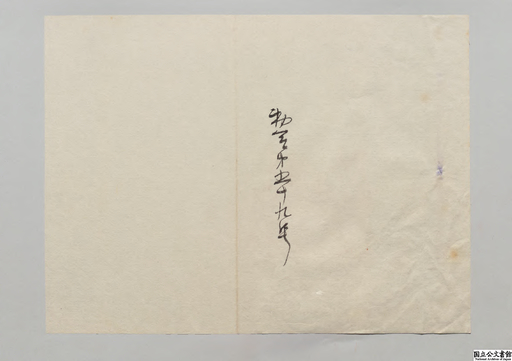 勅令第五十九号
国立公文書館
National Archives of Japan